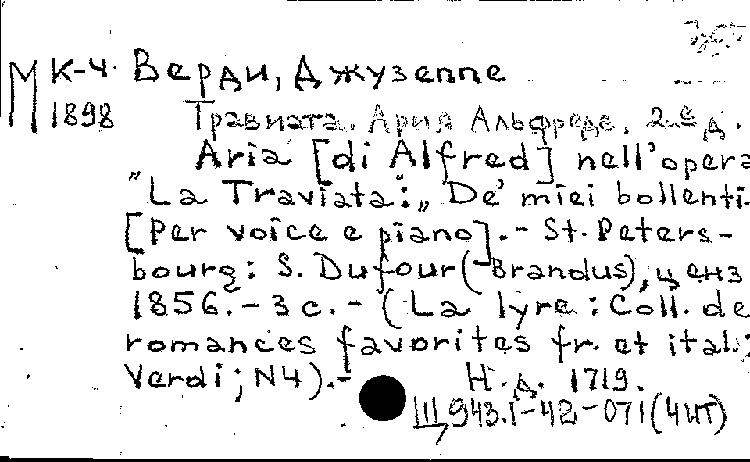 М К-4. Верди, Джузеппе
1898 Травиата. Ария Альфреде. 2.е д.
Aria [di Alfred] nell'opera
"La Traviata:„ De' miei bollenti.
[Per voice e piano].- St. Peters-
bourg: S. Dufour (-Brandus), ценз
1856.- 3 с. - (La lyre : Coll. de
romances favorites fr. et ital.;
Verdi; N4).-
Н.д. 1719.
Ш 943.1-42-071(4ИТ)